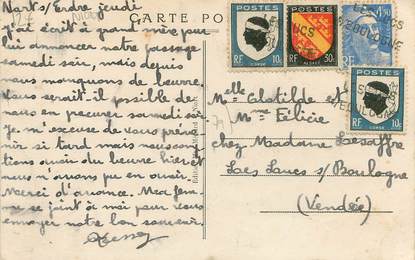 CARTE PO
Nort s/Erdre jeudi
J'ai écrit à grand'mère pour
lui annoncer notre passage
samedi soir, mais depuis
nous manquons de beurre.
Vous serait-il possible de
nous en procurer samedi soir
Je m'excuse de vous préve
nir si tard mais nous comp
tions avoir du beurre hier et
nous n'avons pu en avoir.
Merci d'avance. Ma fem
me se joint à moi pour vous
envoyer notre bon souvenir.
POSTES
10c
CORSE
POSTES
RF
30c
ALSACE
4,50
RF
POSTES
10c
CORSE
LES LUCS
S/BOULOGNE
Melle Clotilde et
Mme Félicie
chez Madame
Les Lucs s/Boulogne
(Vendée)